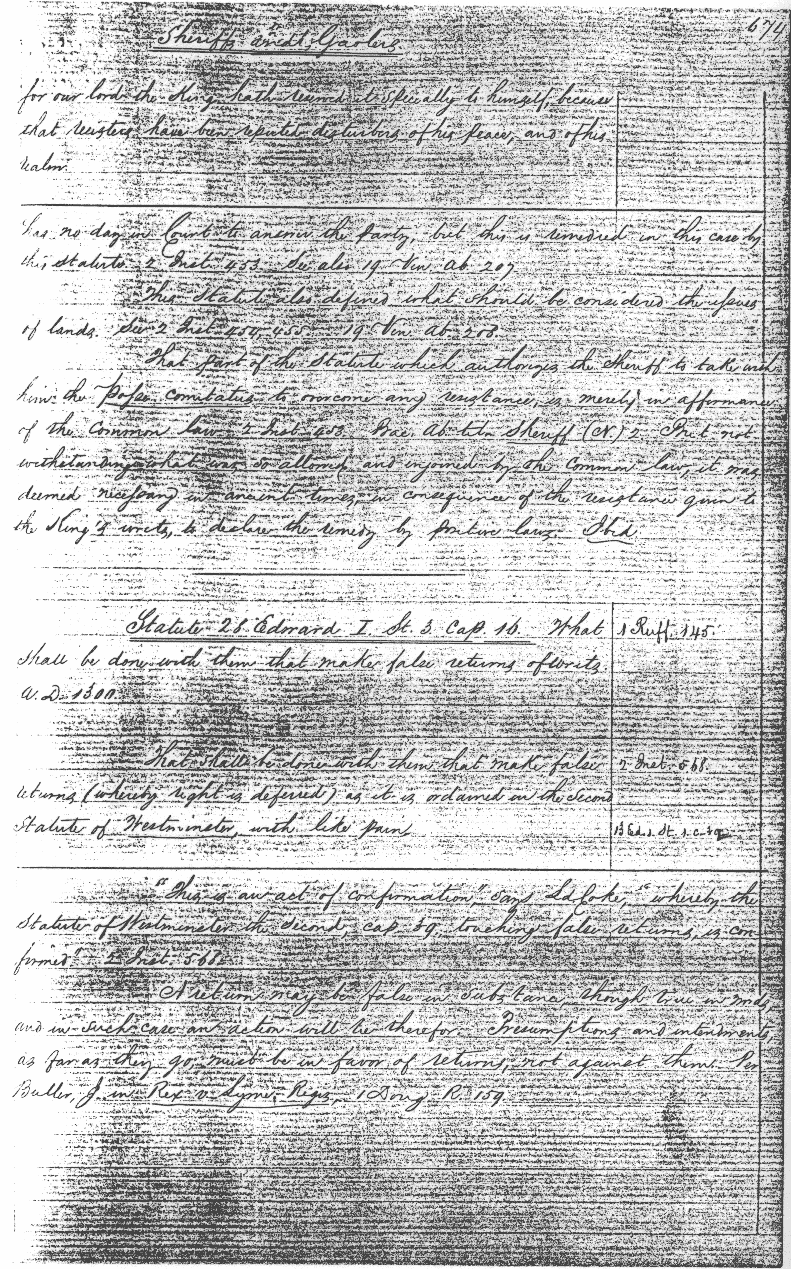 674
Sheriffs and Gaolers
for our lord the King hath reserved it specially to himself, because
that resisters have been reputed disturbers of his peace, and of his
realm.
has no day in Court to answer the party, but this is remedied in this case by
this statute 2 Inst. 453. See also 19 Vin. Ab. 207
This Statute also defined what should be considered the issues
of lands. See 2 Inst. 454, 455. 19 Vin. Ab. 208.
That part of the Statute which authorizes the Sheriff to take with
him the Posse comitatus to overcome any resistance, is merely in affirmance
of the Common law 2 Inst. 453. Bac. Ab. title Sheriff (N.) 2 But not
withstanding what was so allowed and injoined by the Common law, it was
deemed necessary in ancient times, in consequence of the resistance given to
the King's writs, to declare the remedy by positive law. Ibid.
Statute 28 Edward I. St. 3. Cap. 16. What
1 Ruff. 145.
shall be done with them that make false returns of writs.
A.D. 1300.
That shall be done with them that make false
2 Inst. 568.
returns (whereby right is deferred) as it is ordained in the second
Statute of Westminster, with like pain.
13 Ed. 1. St. 1. c. 39
"This is an act of confirmation," says Ld. Coke, "whereby the
Statute of Westminster the second, cap. 39, touching false returns, is con-
firmed" 2 Inst. 568.
A return may be false in substance, though true in words,
and in such case an action will lie therefor. Presumptions and intendments,
as far as they go, must be in favor of returns, not against them. Per
Buller, J. in Rex v. Lyme Regis, 1 Doug. R. 159.